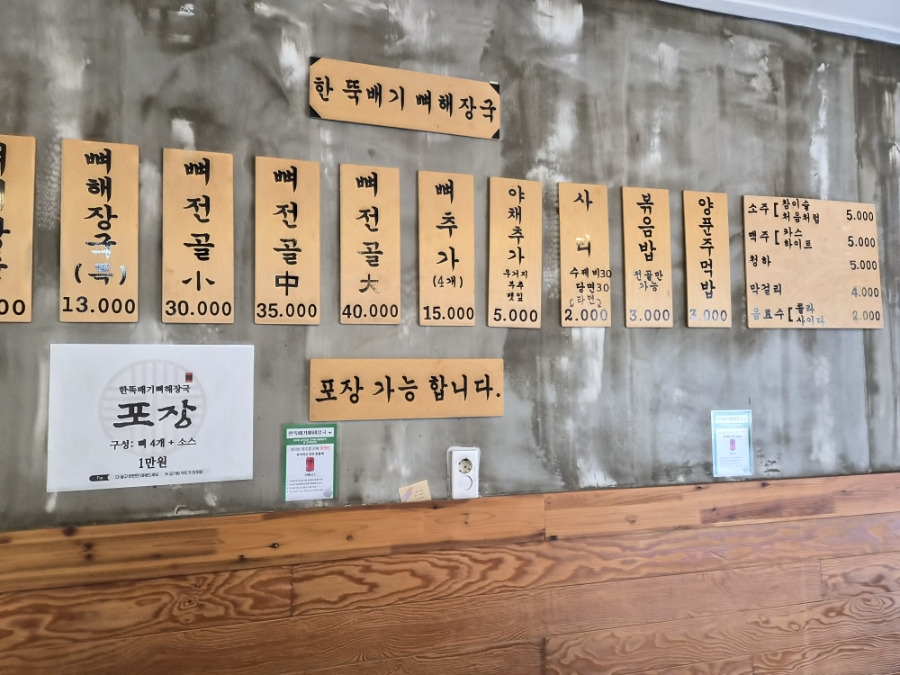 한 뚝배기 뼈해장국
00
뼈해장국
(특)
13.000
뼈전골
小
30.000
뼈전골
中
35.000
뼈전골
大
40.000
뼈추가
(4개)
15.000
야채추가
우거지
부추
깻잎
5.000
사리
수제비30
당면30
(라면)
2.000
볶음밥
전골만
가능
3.000
양푼주먹밥
3.000
소주 [ 참이슬
처음처럼 5.000
맥주 [ 카스
하이트 5.000
청하 5.000
막걸리 4.000
음료수 [ 콜라
사이다 2.000
한뚝배기뼈해장국
포장
구성: 뼈 4개 + 소스
1만원
포장 가능 합니다.
한뚝배기뼈해장국